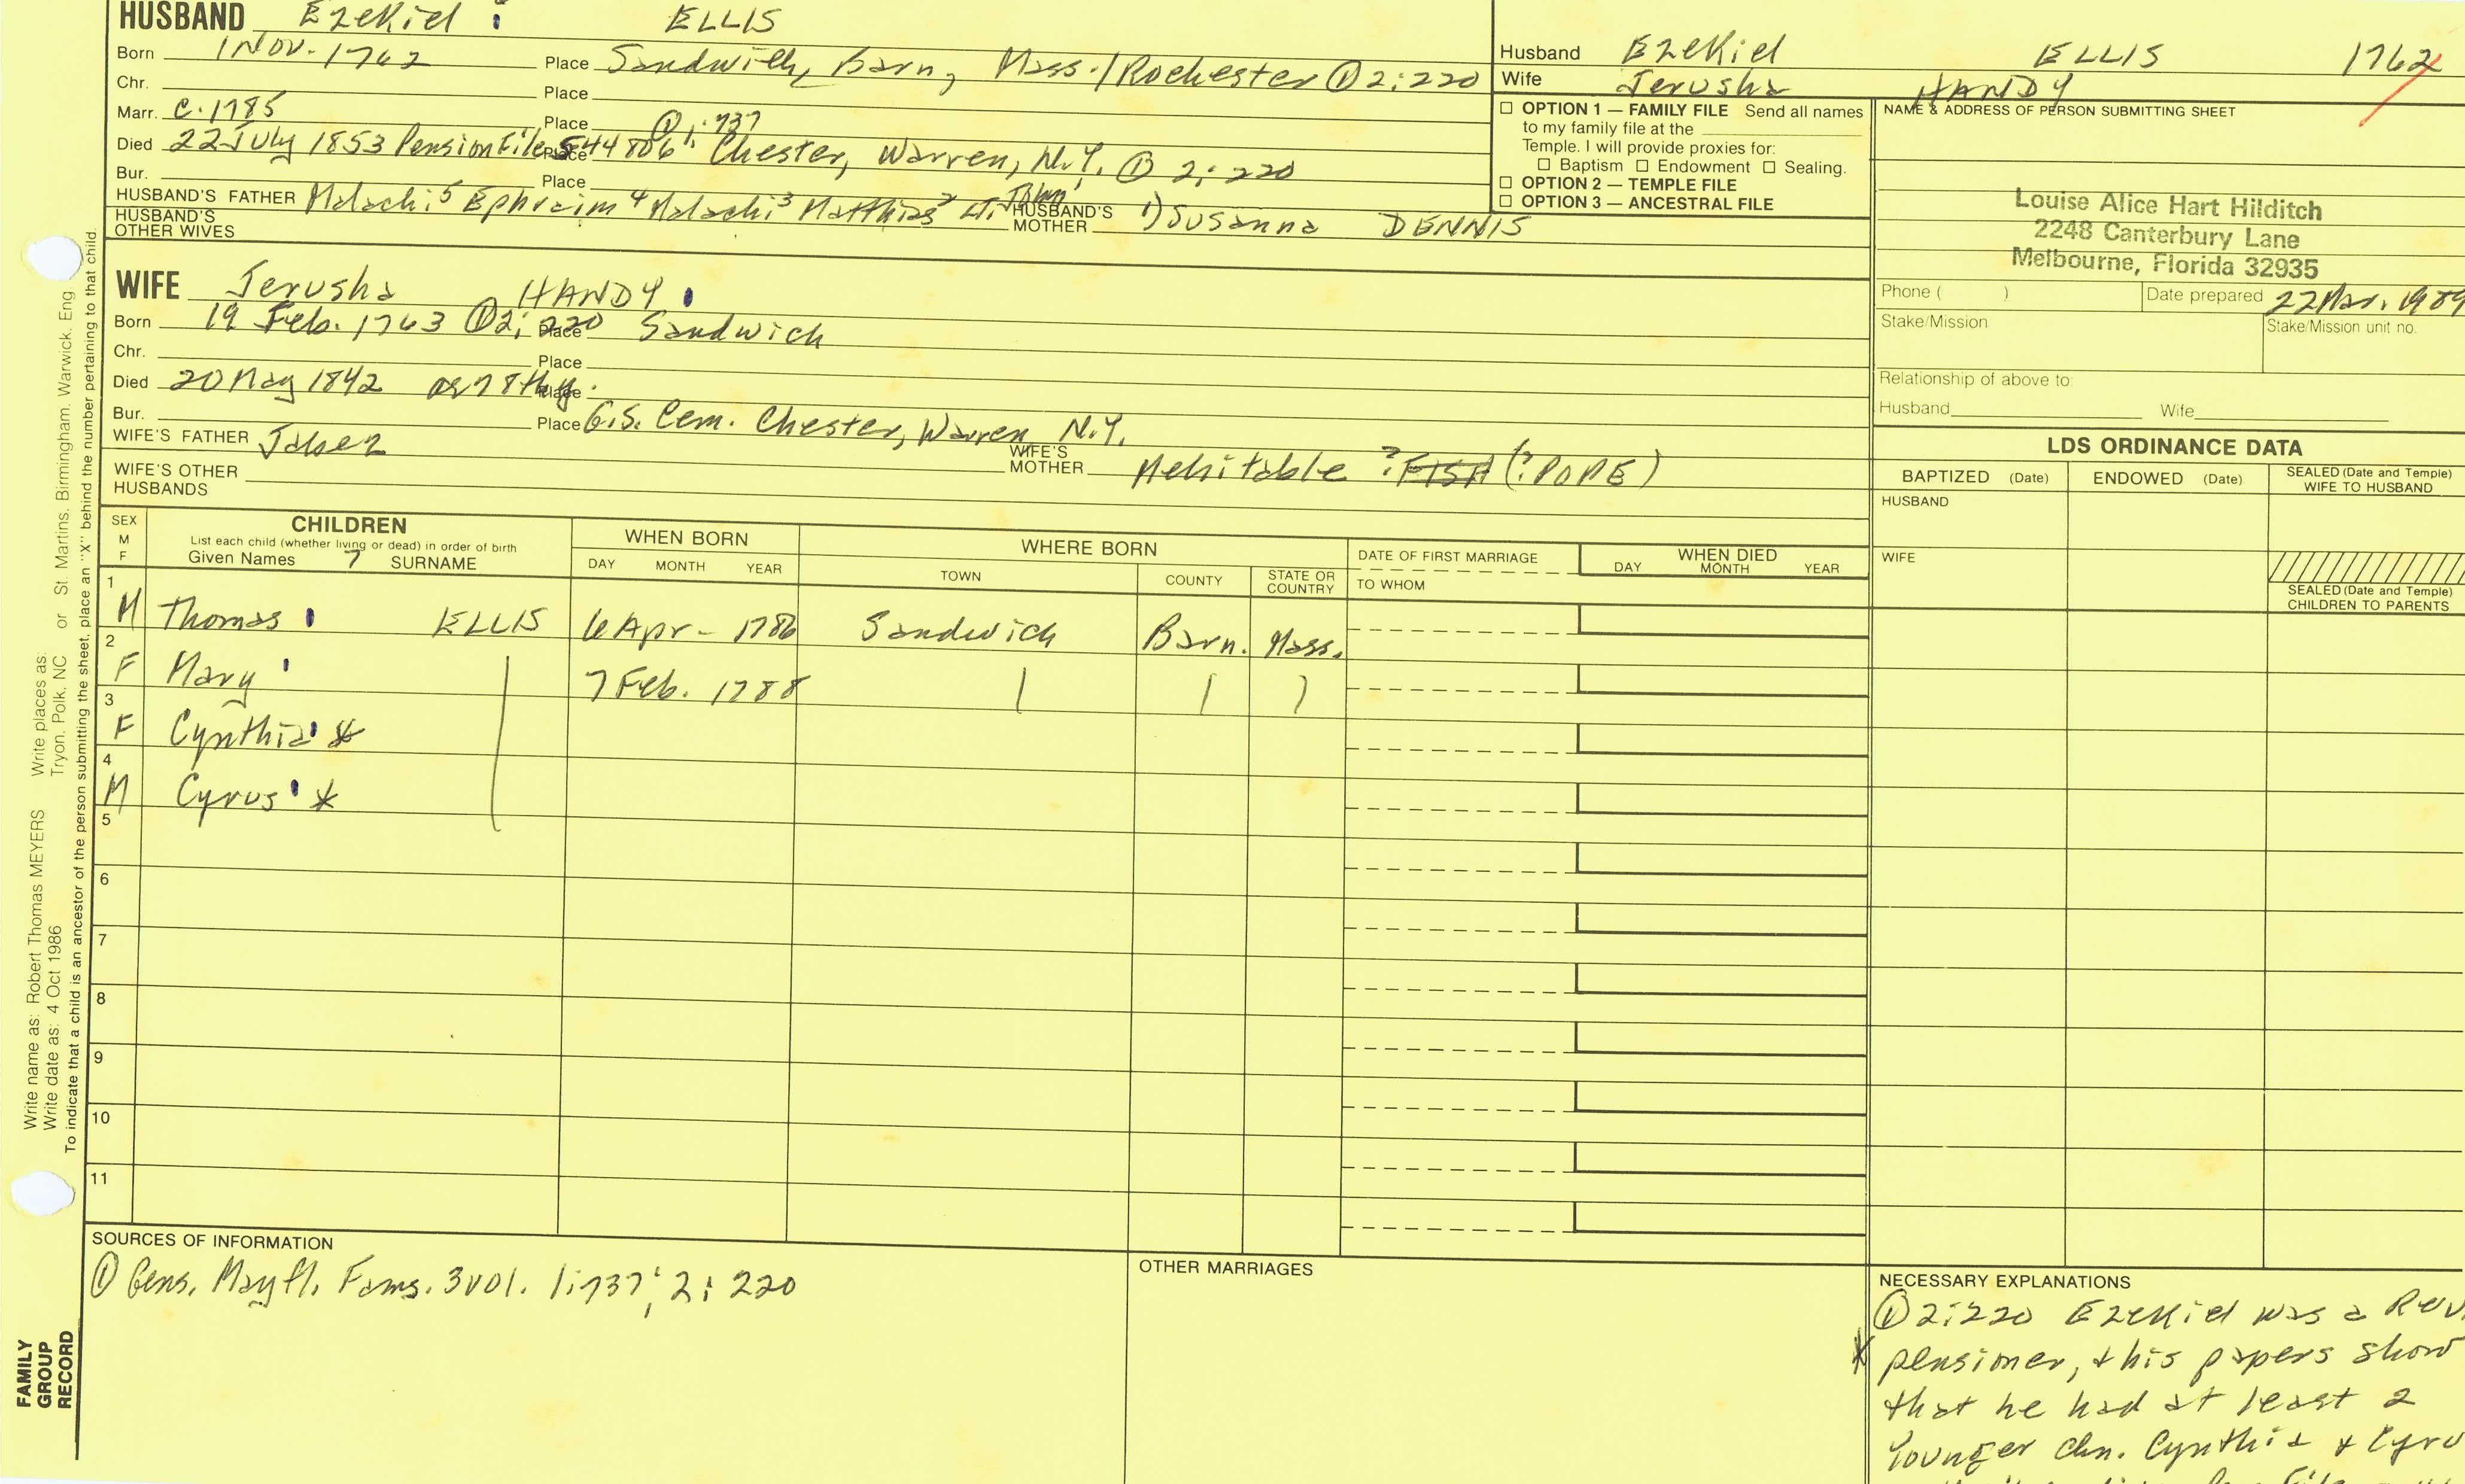 HUSBAND Ezekiel ELLIS
Born 1 Nov. 1762 Place Sandwich, Barn, Mass./Rochester ① 2:220
Chr. Place
Marr. c. 1785 Place ① 1:737
Died 22 July 1853 Pension File S44806 Place Chester, Warren, N.Y. ① 2:220
Bur. Place
HUSBAND'S FATHER Malachi⁵ Ephraim⁴ Malachi³ Matthias² Lt. John¹ HUSBAND'S MOTHER 1) Susanna DENNIS
HUSBAND'S OTHER WIVES
WIFE Jerusha HANDY
Born 19 Feb. 1763 ① 2:220 Place Sandwich
Chr. Place
Died 20 May 1842 ae 78th y. Place
Bur. Place G.S. Cem. Chester, Warren N.Y.
WIFE'S FATHER Jabez WIFE'S MOTHER Mehitable ? FISH (?POPE)
WIFE'S OTHER HUSBANDS
Husband Ezekiel ELLIS 1762
Wife Jerusha HANDY
☐ OPTION 1 — FAMILY FILE Send all names
to my family file at the
Temple. I will provide proxies for:
☐ Baptism ☐ Endowment ☐ Sealing.
☐ OPTION 2 — TEMPLE FILE
☐ OPTION 3 — ANCESTRAL FILE
NAME & ADDRESS OF PERSON SUBMITTING SHEET
Louise Alice Hart Hilditch
2248 Canterbury Lane
Melbourne, Florida 32935
Phone ( ) Date prepared 22 Mar. 1989
Stake/Mission Stake/Mission unit no.
Relationship of above to:
Husband Wife
LDS ORDINANCE DATA
BAPTIZED (Date) ENDOWED (Date) SEALED (Date and Temple) WIFE TO HUSBAND
HUSBAND
WIFE
SEALED (Date and Temple)
CHILDREN TO PARENTS
SEX
M
F
CHILDREN
List each child (whether living or dead) in order of birth
Given Names 7 SURNAME
WHEN BORN
DAY MONTH YEAR
WHERE BORN
TOWN COUNTY STATE OR COUNTRY
DATE OF FIRST MARRIAGE
TO WHOM
WHEN DIED
DAY MONTH YEAR
1 M Thomas ELLIS 6 Apr - 1786 Sandwich Barn. Mass.
2 F Mary 7 Feb. 1788
3 F Cynthia *
4 M Cyrus *
5
6
7
8
9
10
11
SOURCES OF INFORMATION
① Gens. Mayfl. Fams. 3 vol. 1:737; 2:220
OTHER MARRIAGES
NECESSARY EXPLANATIONS
① 2:220 Ezekiel was a Rev.
* pensioner, + his papers show
that he had at least 2
younger chn. Cynthia + Cyru
Write name as: Robert Thomas MEYERS Write places as: Tryon, Polk, NC or St. Martins, Birmingham, Warwick, Eng.
Write date as: 4 Oct 1986
To indicate that a child is an ancestor of the person submitting the sheet, place an "X" behind the number pertaining to that child.
FAMILY
GROUP
RECORD